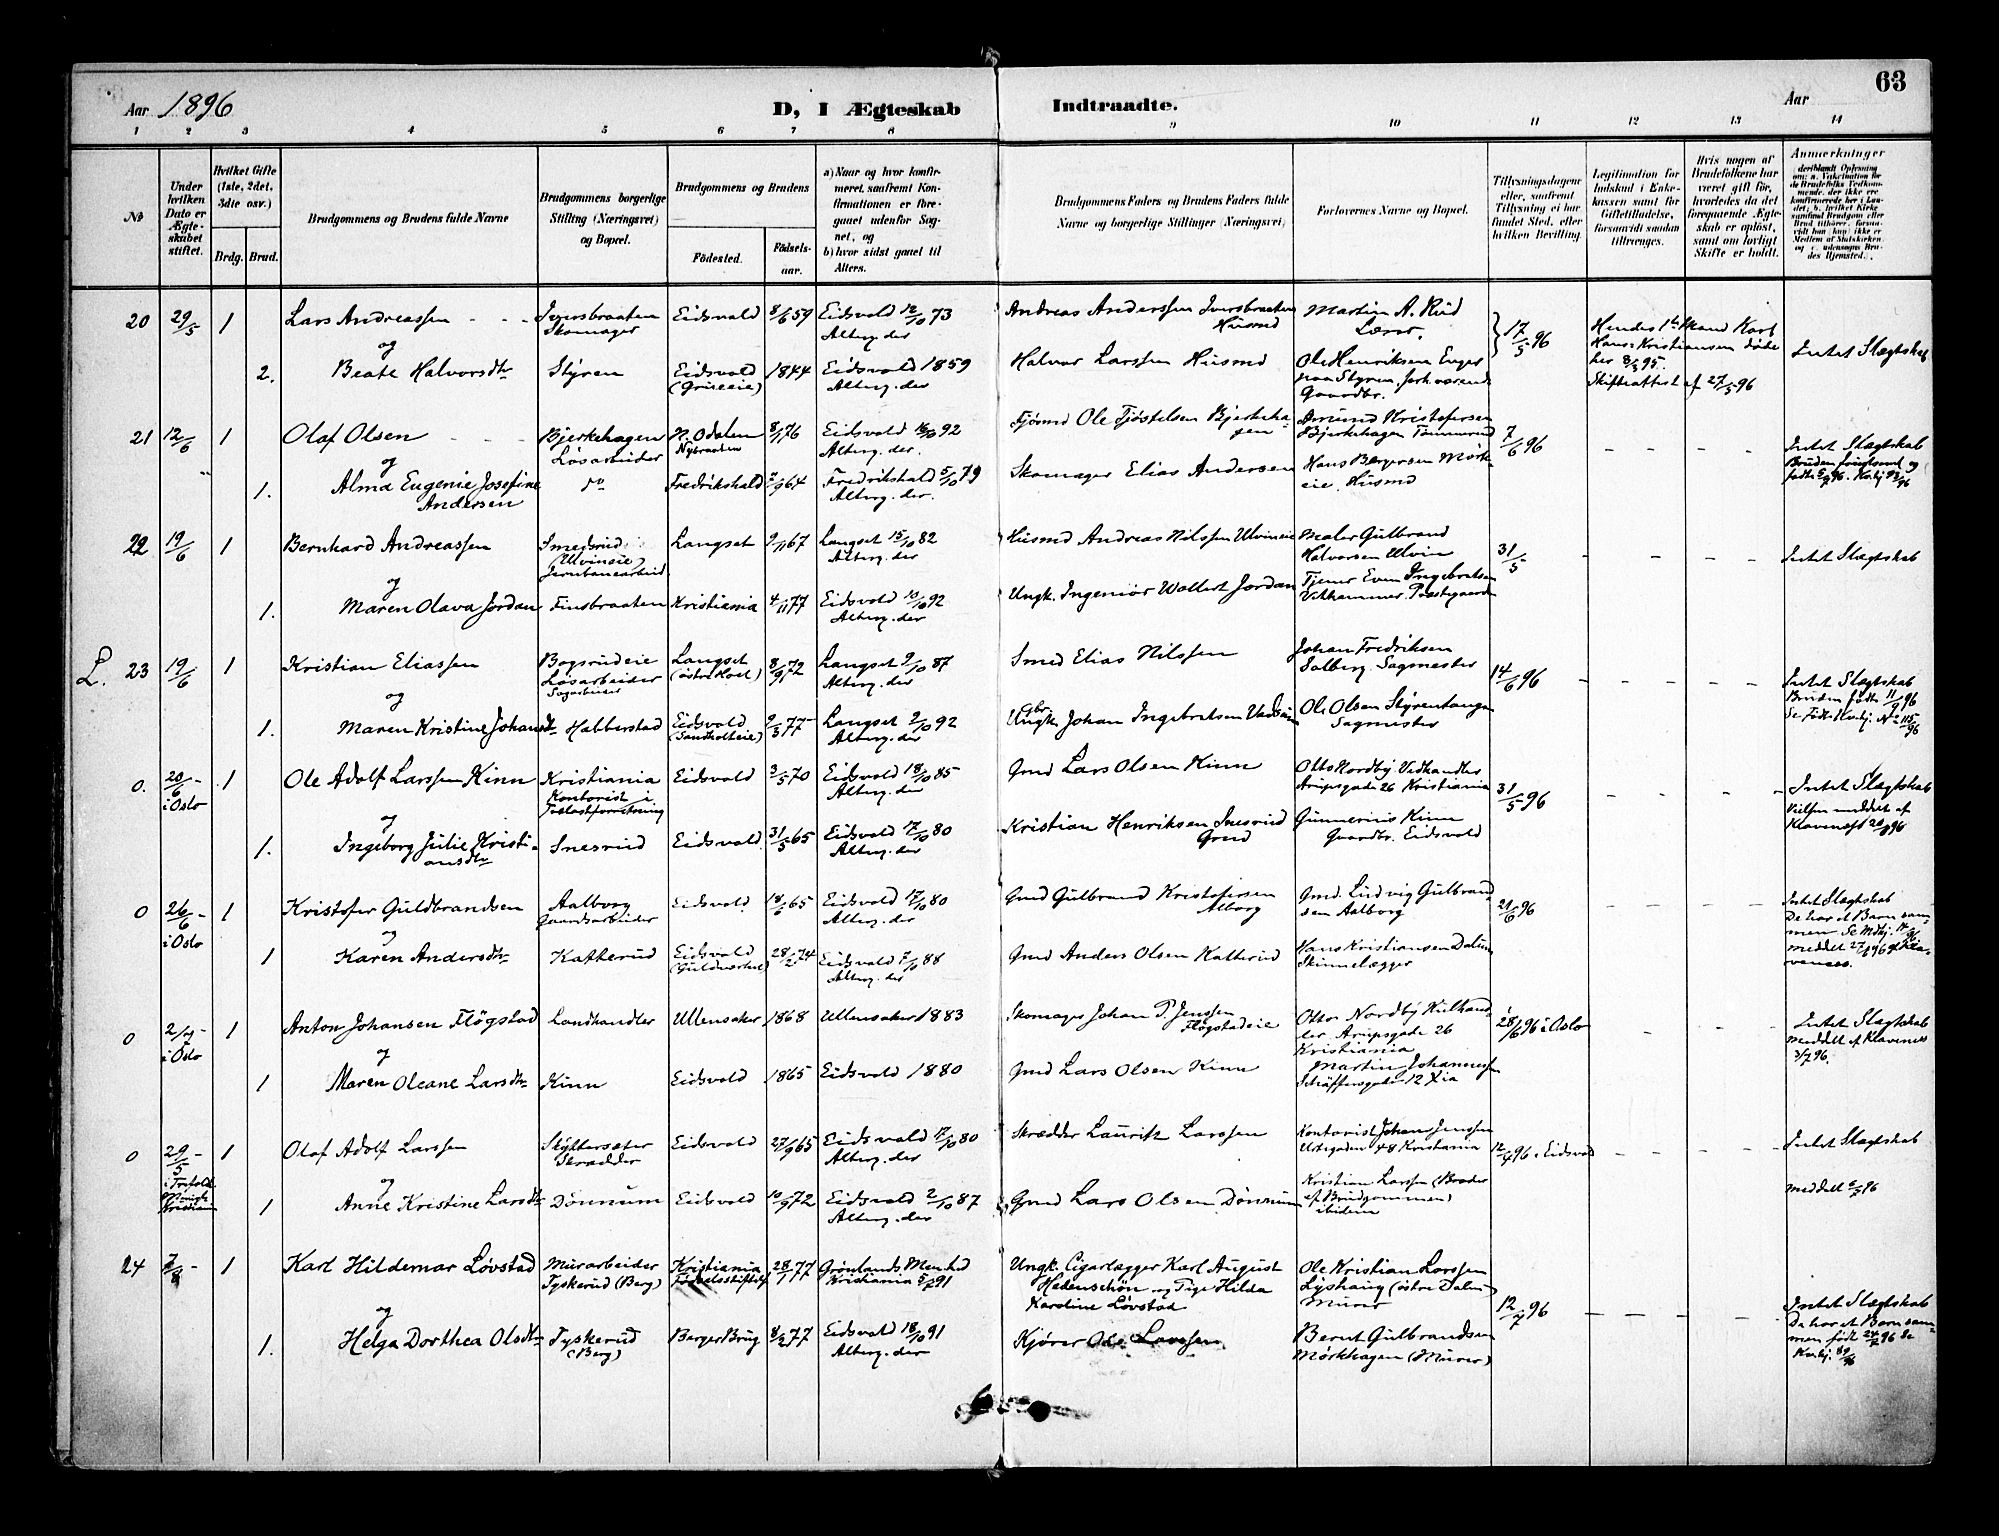 63
Aar 1896
D, I Ægteskab Indtraadte.
Aar
1 2 3 4 5 6 7 8 9 10 11 12 13 14
No
Under hvilken Dato er Ægteskabet stiftet.
Hvilket Gifte (1ste, 2det, 3die osv.)
Brdg. Brud.
Brudgommens og Brudens fulde Navne
Brudgommens borgerlige Stilling (Næringsvei) og Bopæl.
Brudgommens og Brudens
Fødested.
Fødselsaar.
a) Naar og hvor konfirmeret, saafremt Konfirmationen er foregaaet udenfor Sognet, og
b) hvor sidst gaaet til Alters.
Brudgommens Faders og Brudens Faders fulde Navne og borgerlige Stillinger (Næringsvei)
Forlovernes Navne og Bopæl.
Tillysningsdagene eller, saafremt Tillysning ei har fundet Sted, efter hvilken Bevilling
Legitimation for Indskud i Enkekassen samt for Giftetilladelse, forsaavidt saadan tiltrænges.
Hvis nogen af Brudefolkene har været gift før, hvorledes da det foregaaende Ægteskab er opløst, samt om lovligt Skifte er holdt.
Anmærkninger
20 29/5 1 Lars Andreassen Iversbraaten Skomager Eidsvold 8/6 59 Eidsvold 12/10 73 Alterg. der Andreas Anderssen Iversbraaten Husmd Martin A. Rud Lærer 17/5 96 Hendes 1ste Mand Karl Hans Kristiansen døde her 8/3 95. Skifteattest af 27/5 96 Intet Slægtskab
og
2. Beate Halvorsdtr Styren Eidsvold 1844 Eidsvold 1859 Alterg. der Halvar Larssen Husmd Ole Henriksen Enger paa Styren, forhværend Gaardbr.
21 12/6 1 Olaf Olsen Bjerkehagen Løsarbeider N. Odalen Nybraaten 8/1 76 Eidsvold 16/10 92 Alterg. der. Fjøsmd Ole Fjøstelsen Bjerkehagen Amund Kristofersen Bjerkehagen Tømmermd 7/6 96 Intet Slægtskab
og
1. Alma Eugenie Josefine Andersen do Fredrikshald 64 Fredrikshald 5/10 79 Alterg. der. Skomager Elias Andersen Hans Bergersen Mørkeie. Husmd
22 19/6 1 Bernhard Andreassen Smedsrud (Ulvineie) Jernbanearbeid. Langset 9/11 67 Langset 15/10 82 Alterg. der Husmd Andreas Nilssen Ulvineie Maler Gulbrand Halvorsen Ulvin 31/5 Intet Slægtskab
og
1. Maren Olava Jordan Finsbraaten Kristiania 4/11 77 Eidsvold 10/10 92 Alterg. der Ungk. Ingeniør Wollert Jordan Tjener Even Ingebretsen Vikhammer Præstegaard
L. 23 19/6 1 Kristian Eliassen Bogsrudeie Løsarbeider Sagarbeider Langset (østre Hoel) 8/9 72 Langset 9/10 87 Alterg. der Smed Elias Nilssen Johan Fredriksen Solberg. Sagmester 14/6 96 Intet Slægtskab Bruden født 11/9 96 Se Født. Kvkj. No 115/96
og
1. Maren Kristine Johansdtr Habberstad Eidsvold (Sandholteie) 9/3 77 Langset 2/10 92 Alterg. der Gbr. Ungk. Johan Ingebretsen Ole Olsen Styrentangen Sagmester
0. 20/6 i Oslo 1 Ole Adolf Larssen Kinn Kristiania Kontorist i Eidsvold 3/5 70 Eidsvold 18/10 85 Alterg. der Gmd Lars Olsen Kinn Otto Nordby Vedhandler Arupsgade 26 Kristiania 31/5 96 Intet Slægtskab Vielsen meddelt af Klaveness
og
1. Ingeborg Julie Kristiansdtr Snesrud Eidsvold 31/5 65 Eidsvold 17/10 80 Alterg. der Kristian Henriksen Snesrud Gmd Gunnerius Kinn Gaardbr. Eidsvold
0 26/6 i Oslo 1 Kristofer Guldbrandsen Aalborg Gaardsarbeider Eidsvold 18/6 65 Eidsvold 17/10 80 Alterg. der Gmd Gulbrand Kristofersen Alborg Gmd. Ludvig Gulbrandsen Aalborg 21/6 96 Intet Slægtskab De har et Barn sammen
og
1 Karen Andersdtr Katterud Eidsvold (Guldværket) 28/2 74 Eidsvold 7/10 88 Alterg. der Gmd Anders Olsen Katterud Hans Kristiansen Dalum Skindlægger
0 2/7 i Oslo 1 Anton Johansen Fløgstad Landhandler Ullensaker 1868 Ullensaker 1883 Skomager Johan P. Jenssen Fløgstadeie Otto Nordby Kulhandler Arupsgade 26 Kristiania 28/6 96 i Oslo Intet Slægtskab Meddelt af Klaveness 3/7 96.
og
1 Maren Oleane Larsdtr Kinn Eidsvold 1865 Eidsvold 1880 Gmd Lars Olsen Kinn Martin Johannessen Schäffersgade 12 Xia
0 29/5 1 Olaf Adolf Larssen Skyttersæter Skrædder Eidsvold 27/9 65 Eidsvold 17/10 80 Alterg. der Skrædder Laurits Larssen Kontorist Johan Jenssen Urtegaden 48 Kristiania 12/4 96 i Eidsvold Intet Slægtskab
og
1 Anne Kristine Larsdtr Dønnum Eidsvold 10/9 72 Eidsvold 2/10 87 Alterg. der Gmd Lars Olsen Dønnum Kristian Larssen (Broder af Brudgommen) ibidem Meddelt 6/7 96
24 7/8 1 Karl Hildemar Løvstad Murarbeider Tyskerud (Berg) Kristiania Fødselsstiftelse 28/1 77 Grønlands Menihed Kristiania 5/7 91 Ungk. Cigarlægger Karl August Hedenschøn og Pige Hilda Karoline Løvstad Ole Kristian Larssen Lyshaug (østre Dalum) Murer 12/7 96 Intet Slægtskab De har et Barn sammen født 24/7 96 Se Kvkj. 89/96
og
1. Helga Dorthea Olsdtr Tyskerud (Berg) Berger Brug 8/2 77 Eidsvold 18/10 91 Alterg. der Kjører Ole Larssen Bernt Gulbrandsen Mørkhagen (Murer)